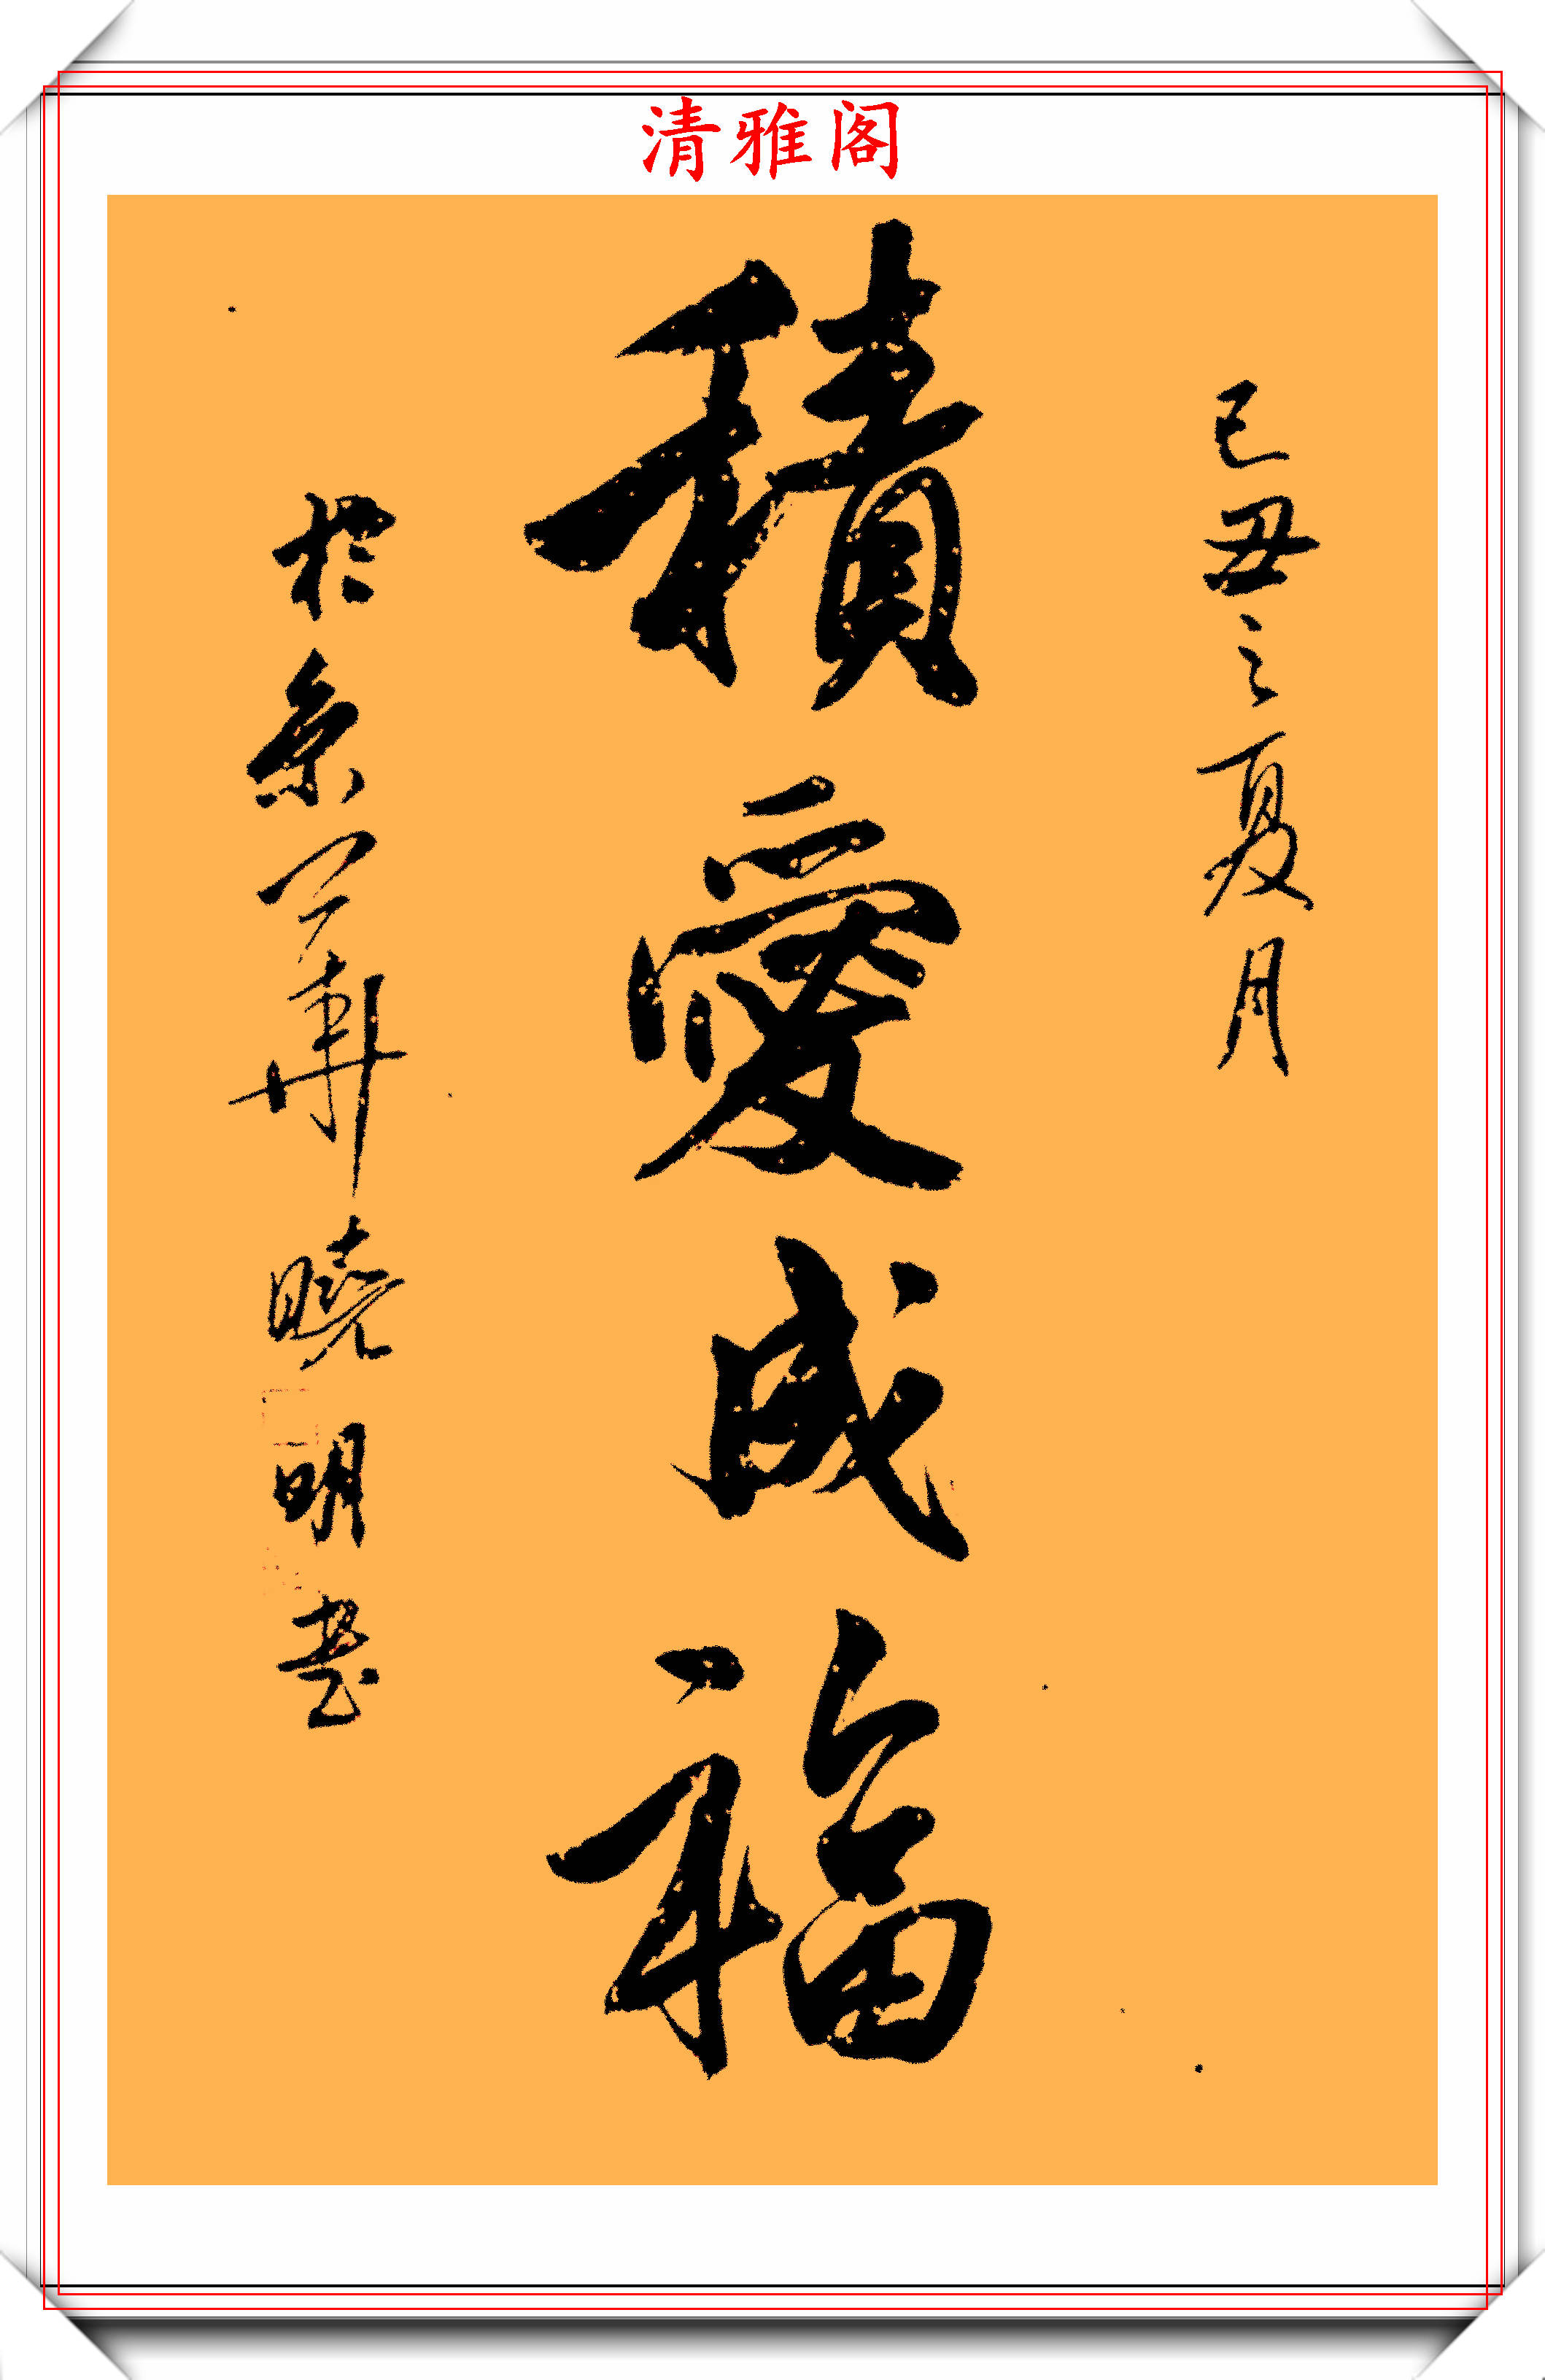 清雅阁
己丑之夏月
積愛成福
於京 曉明書